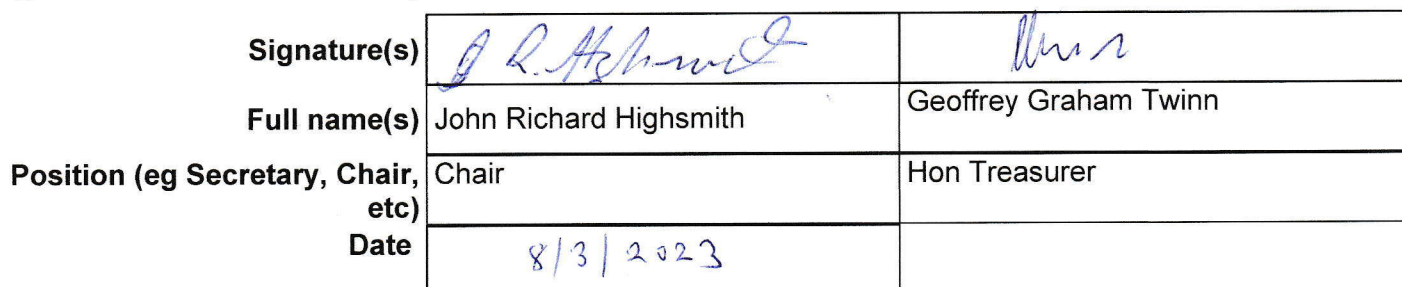 Signature(s) J R. Highsmith
Full name(s) John Richard Highsmith Geoffrey Graham Twinn
Position (eg Secretary, Chair, Chair Hon Treasurer
etc)
Date 8/3/2023